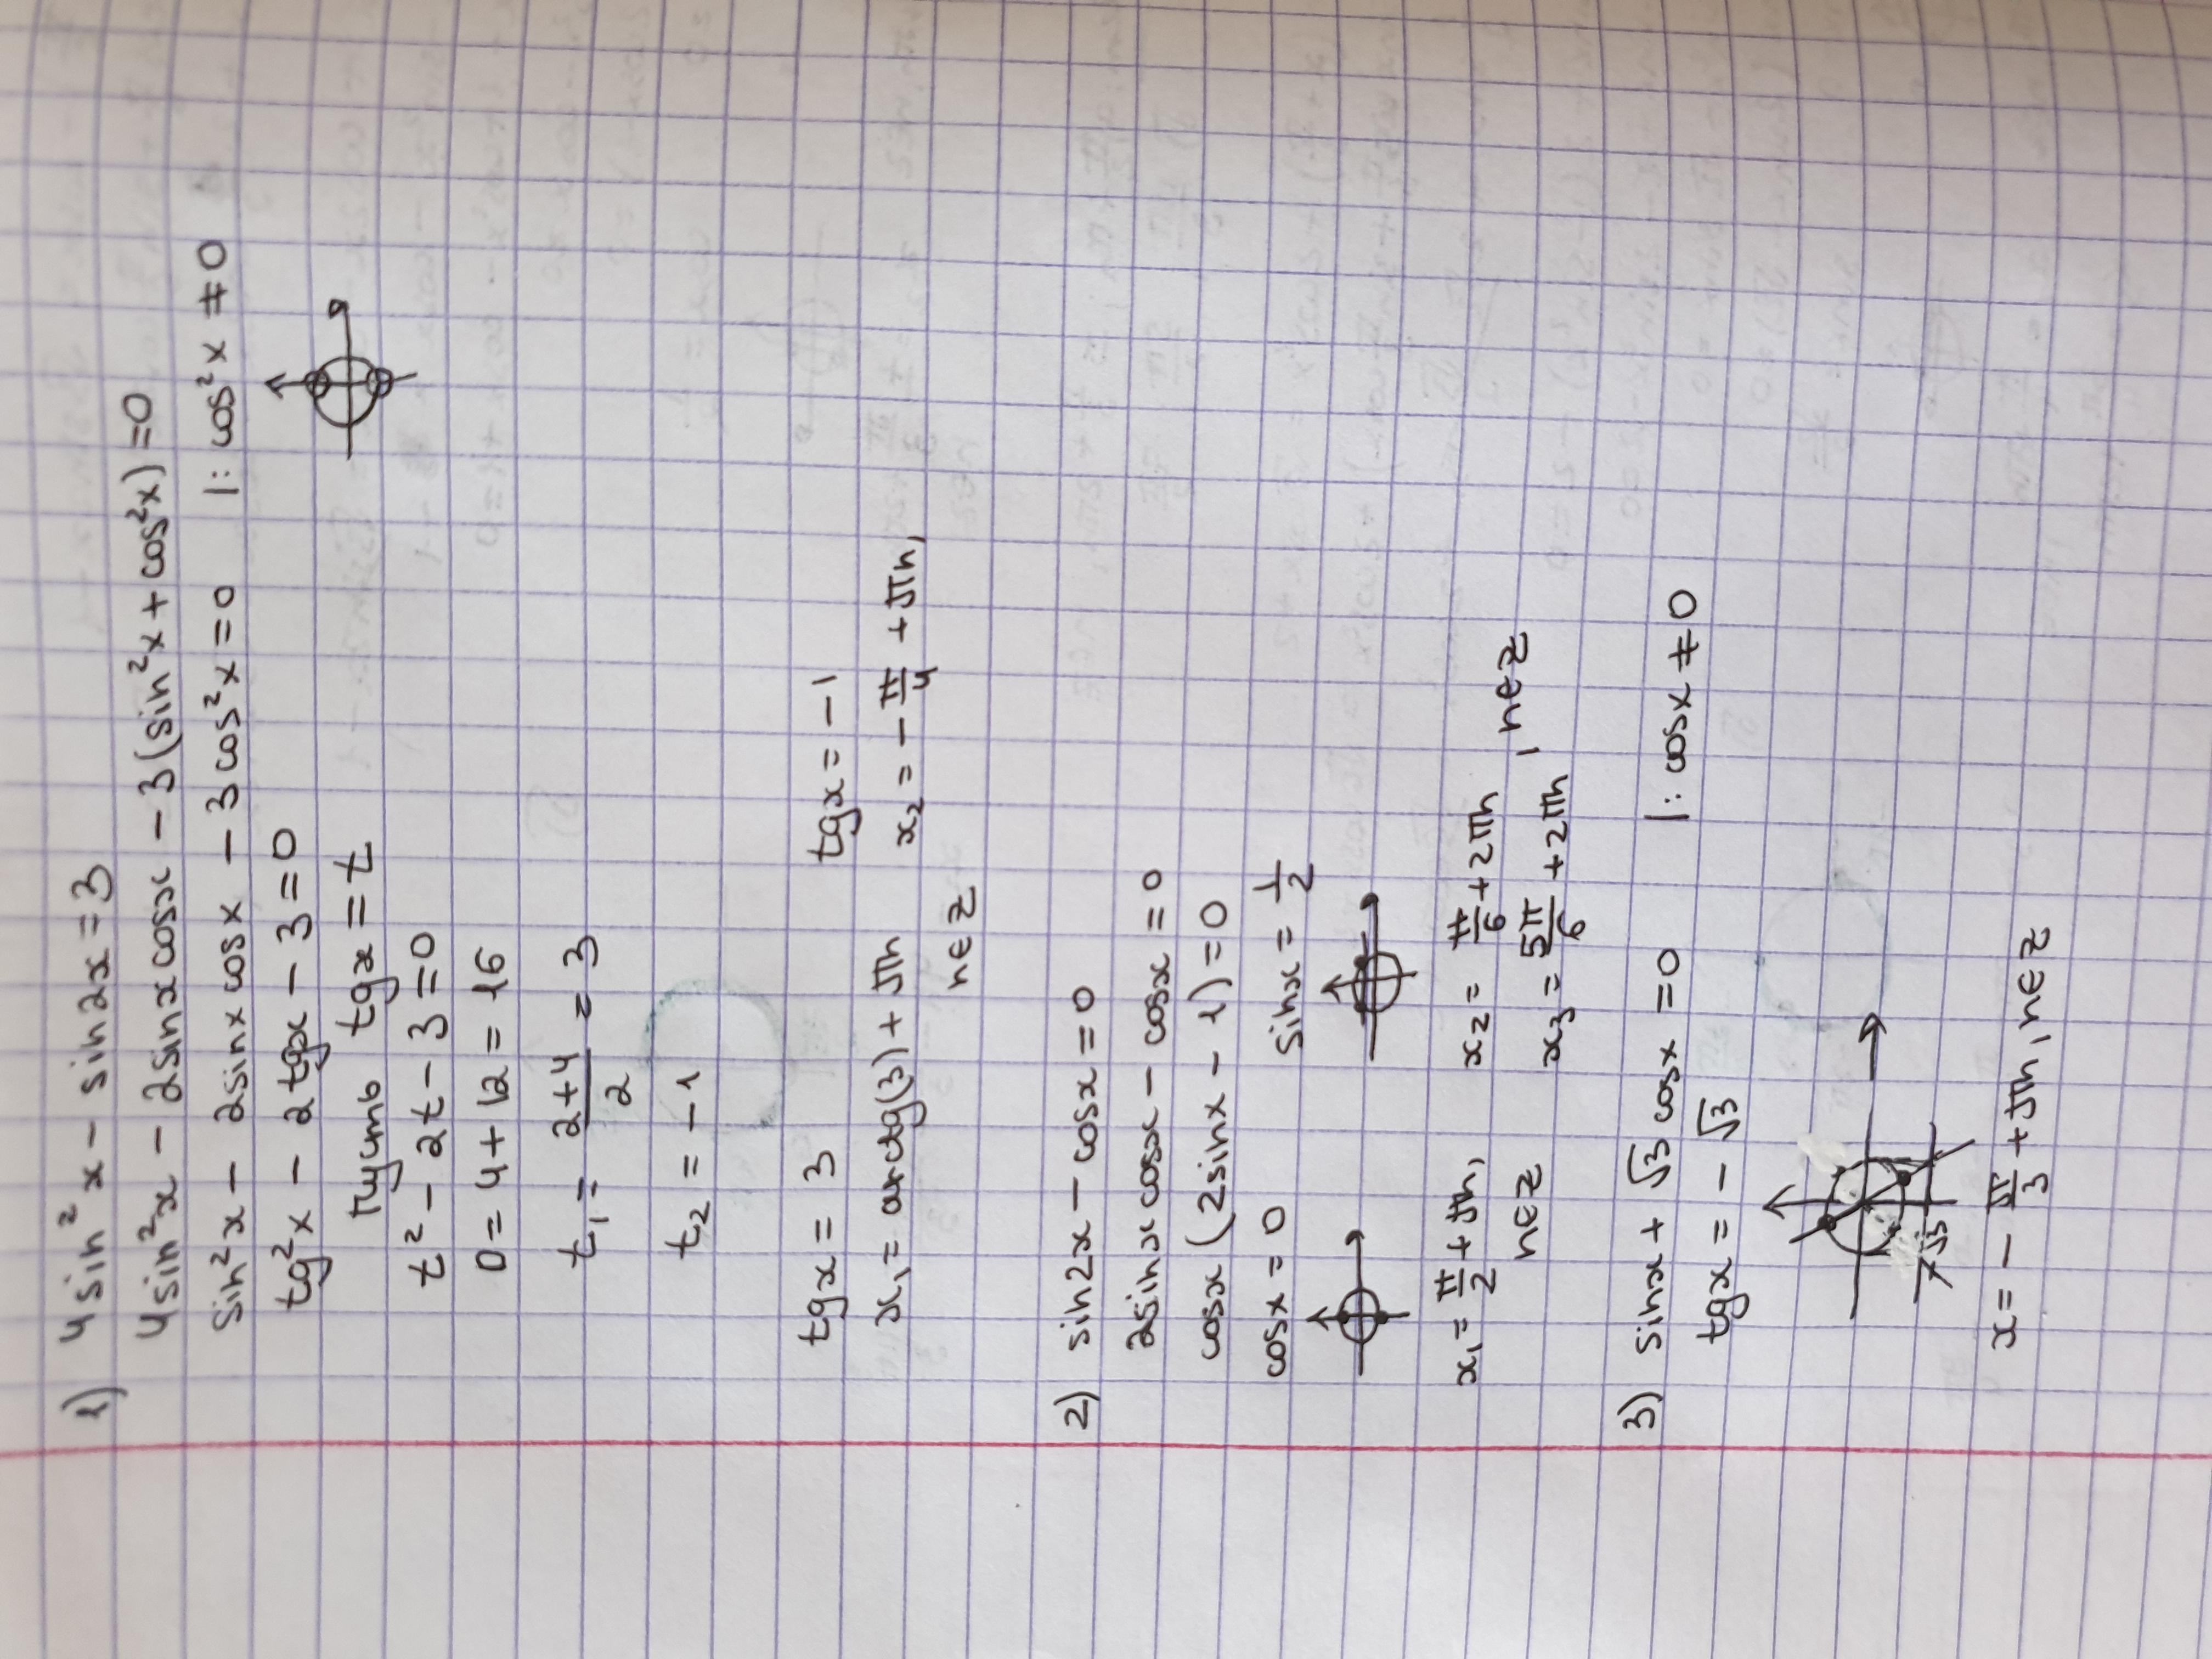 1) 4sin²x - sin2x = 3
4sin²x - 2sinxcosx - 3(sin²x + cos²x) = 0
sin²x - 2sinxcosx - 3cos²x = 0 |: cos²x ≠ 0
tg²x - 2tgx - 3 = 0
Пусть tgx = t
t² - 2t - 3 = 0
D = 4 + 12 = 16
t₁ = \frac{2+4}{2} = 3
t₂ = -1
tgx = 3 tgx = -1
x₁ = arctg(3) + πn x₂ = -\frac{π}{4} + πn,
n∈Z
2) sin2x - cosx = 0
2sinxcosx - cosx = 0
cosx(2sinx - 1) = 0
cosx = 0 sinx = \frac{1}{2}
x₁ = \frac{π}{2} + πn, x₂ = \frac{π}{6} + 2πn
n∈Z x₃ = \frac{5π}{6} + 2πn , n∈Z
3) sinx + √3 cosx = 0 |: cosx ≠ 0
tgx = -√3
x = -\frac{π}{3} + πn, n∈Z